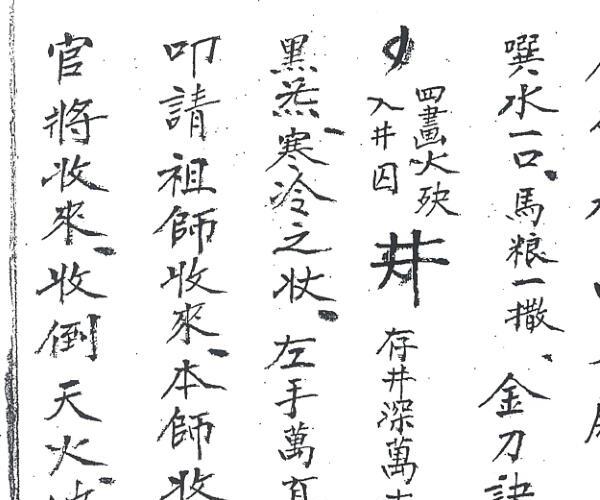 噀水一口、馬粮一撒、金刀訣
四畫火殃
入井囚
井
存井深萬
黑炁、寒冷之状、左手萬
叩請祖師收來、本師收
官將收來、收倒天火